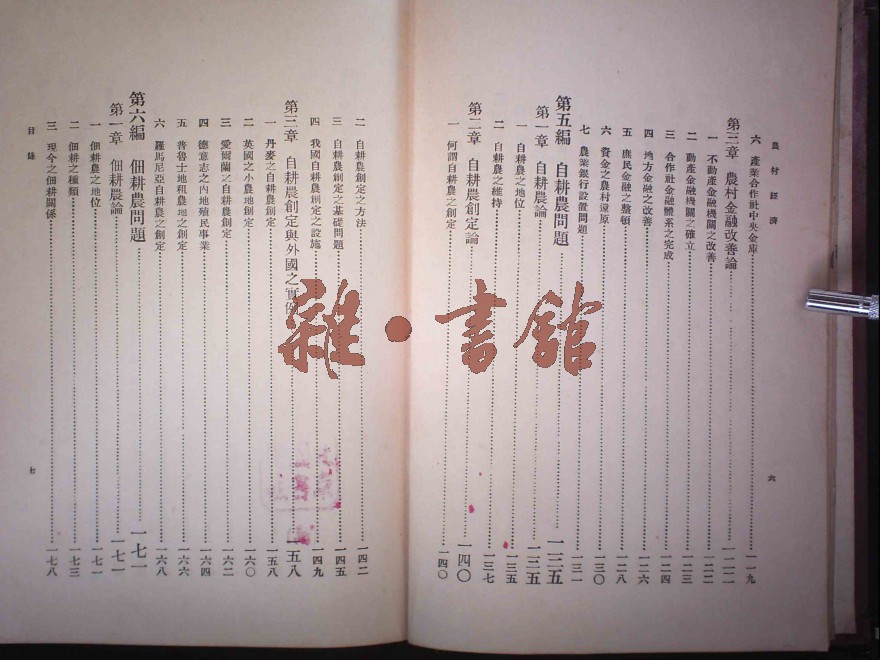 農村經濟
六 產業合作社中央金庫 一一九
第三章 農村金融改善論 一二二
一 不動產金融機關之改善 一二二
二 動產金融機關之確立 一二三
三 合作社金融體系之完成 一二四
四 地方金融之改善 一二六
五 庶民金融之整頓 一二八
六 資金之農村還原 一三〇
七 農業銀行設置問題 一三一
第五編 自耕農問題 一三五
第一章 自耕農論 一三五
一 自耕農之地位 一三五
二 自耕農之維持 一三七
第二章 自耕農創定論 一四〇
一 何謂自耕農之創定 一四〇
六
二 自耕農創定之方法 一四二
三 自耕農創定之基礎問題 一四五
四 我國自耕農創定之設施 一四九
第三章 自耕農創定與外國之實例 一五八
一 丹麥之自耕農創定 一五八
二 英國之小農地創定 一六〇
三 愛爾蘭之自耕農創定 一六二
四 德意志之內地殖民事業 一六四
五 普魯士地租農地之創定 一六六
六 羅馬尼亞自耕農之創定 一六八
第六編 佃耕農問題 一七一
第一章 佃耕農論 一七一
一 佃耕農之地位 一七一
二 佃耕之種類 一七三
三 現今之佃耕關係 一七八
目錄
七
雜·書館